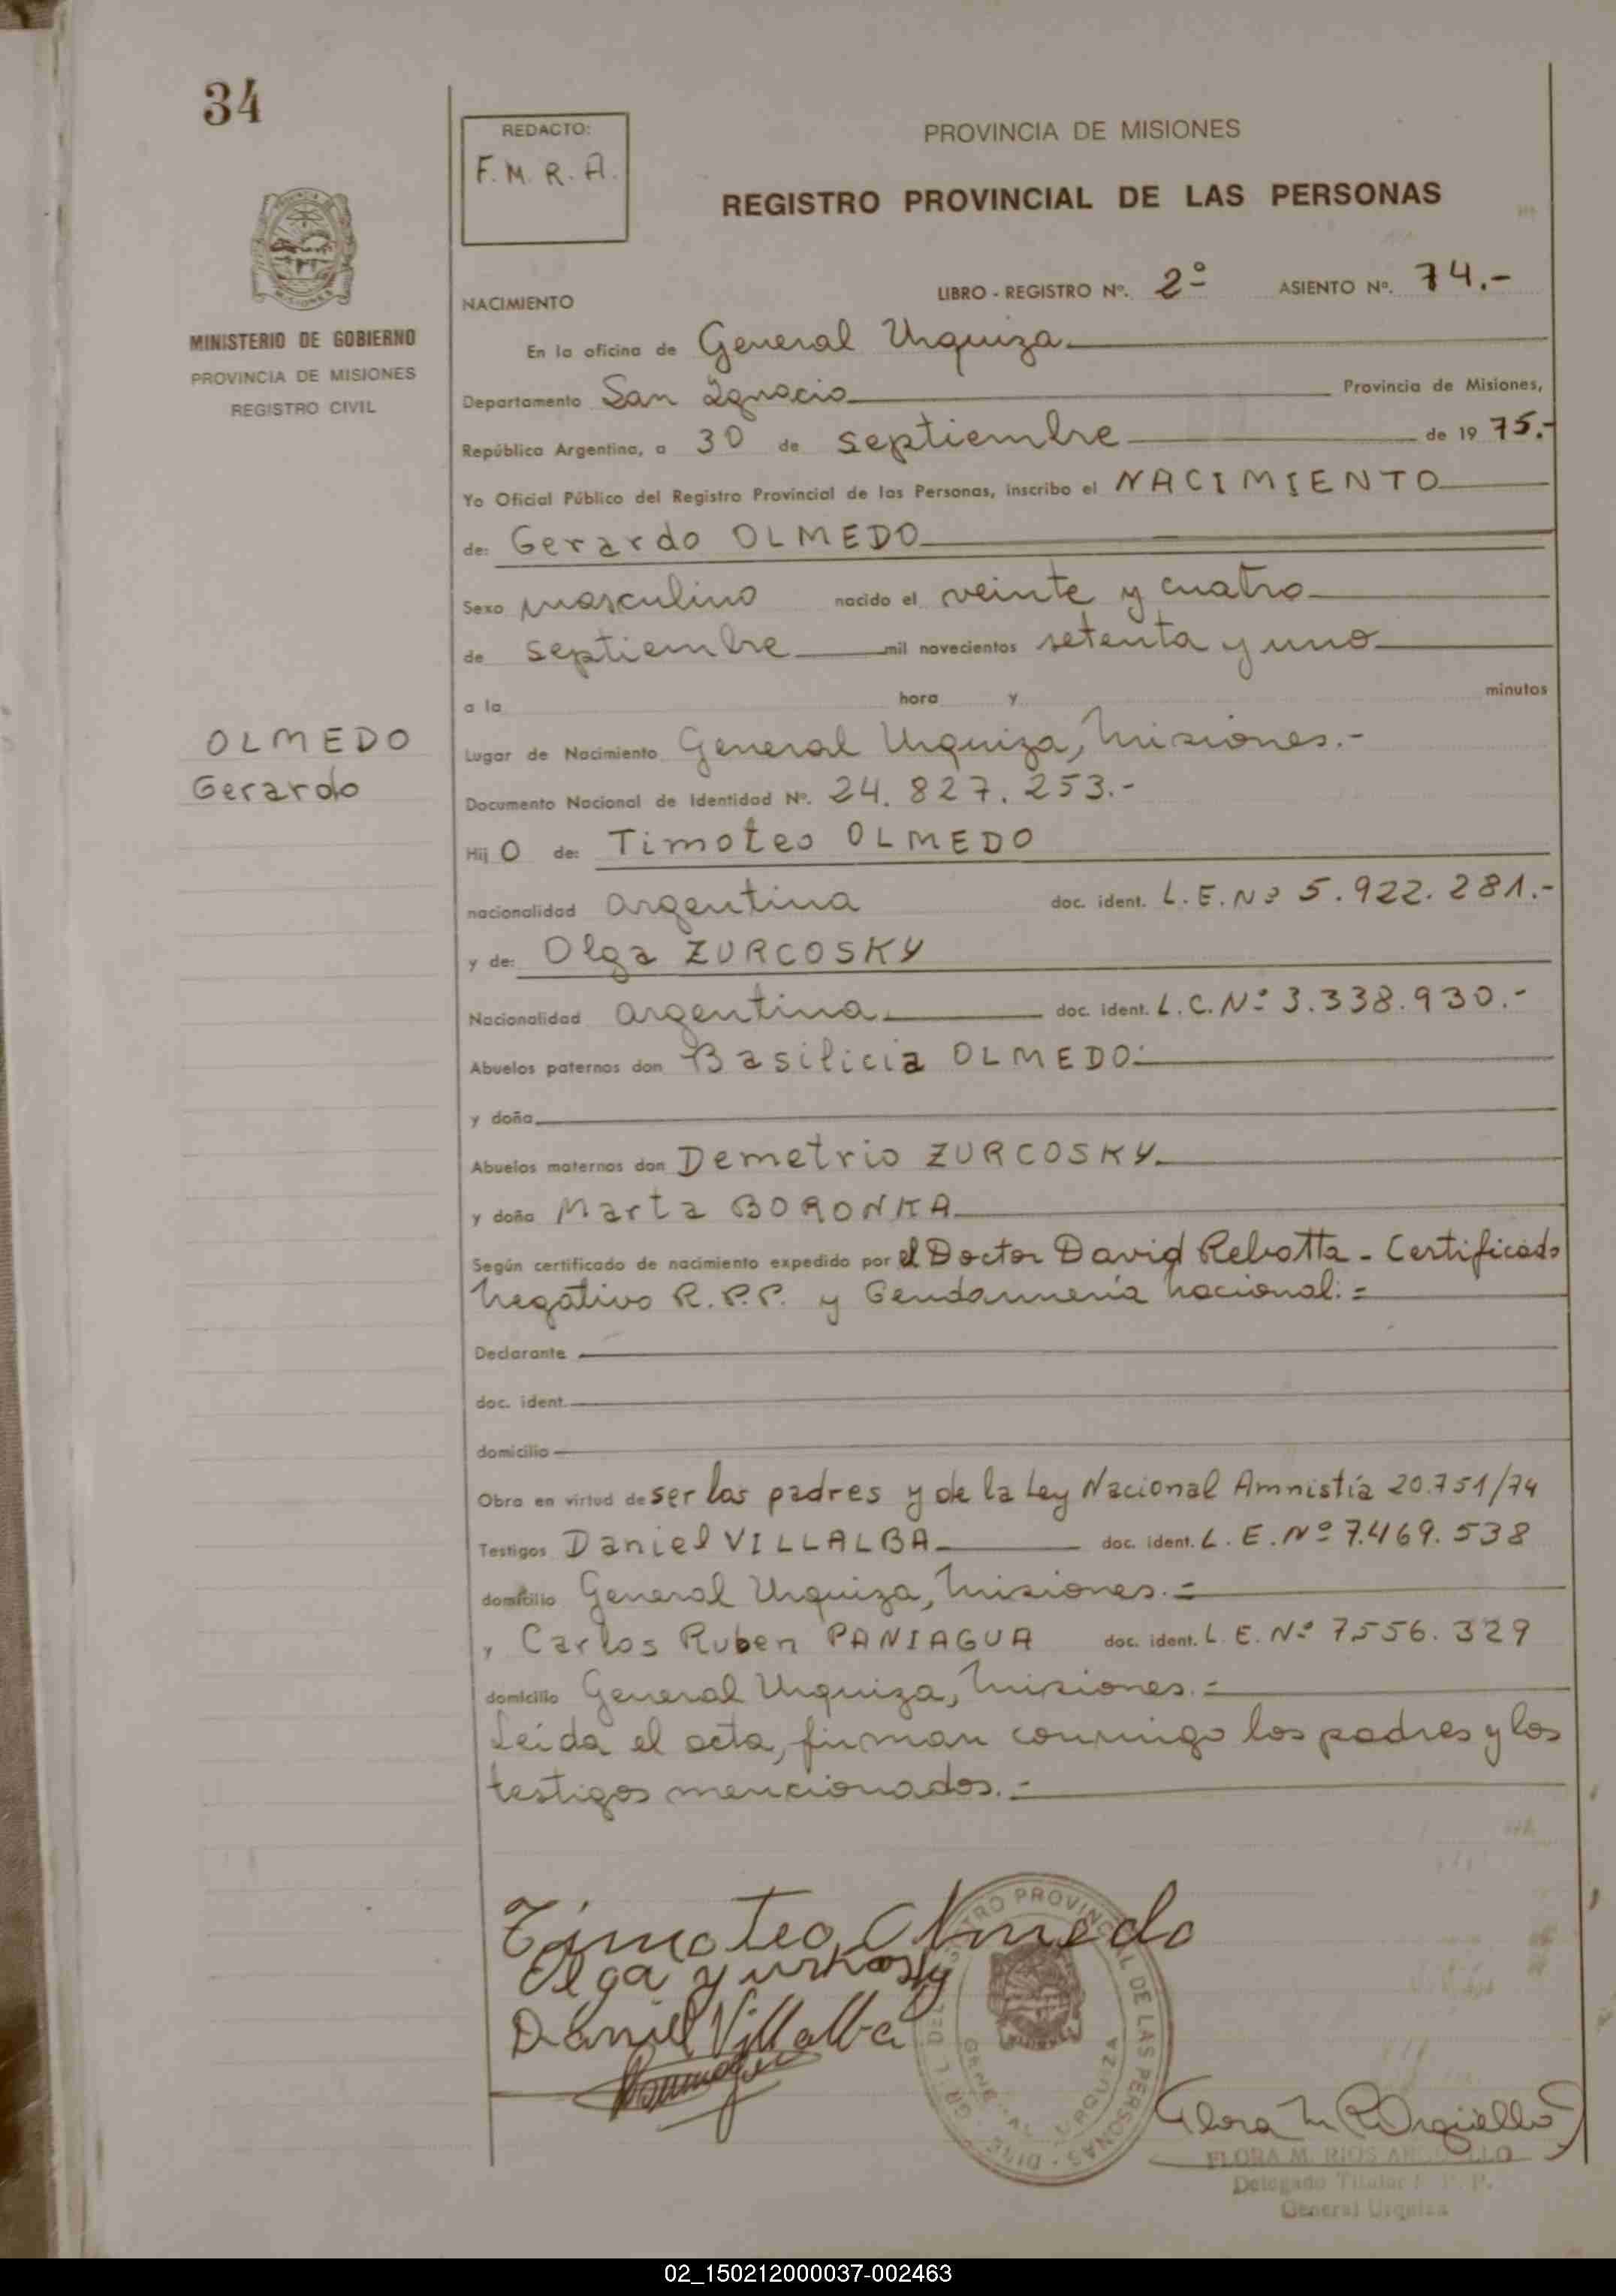 34
REDACTO:
F. M. R. A.
PROVINCIA DE MISIONES
REGISTRO PROVINCIAL DE LAS PERSONAS
MISIONES
MINISTERIO DE GOBIERNO
PROVINCIA DE MISIONES
REGISTRO CIVIL
NACIMIENTO
LIBRO - REGISTRO Nº. 2º ASIENTO Nº. 74.-
En la oficina de General Urquiza
Departamento San Ignacio Provincia de Misiones,
República Argentina, a 30 de septiembre de 19 75.-
Yo Oficial Público del Registro Provincial de las Personas, inscribo el NACIMIENTO
de: Gerardo OLMEDO
Sexo masculino nacido el veinte y cuatro
de septiembre mil novecientos setenta y uno
a la hora y minutos
OLMEDO
Gerardo
Lugar de Nacimiento General Urquiza, Misiones.-
Documento Nacional de Identidad Nº. 24.827.253.-
Hij O de: Timoteo OLMEDO
nacionalidad argentina doc. ident. L.E.Nº 5.922.281.-
y de: Olga ZURCOSKY
Nacionalidad argentina doc. ident. L.C.Nº 3.338.930.-
Abuelos paternos don Basilicia OLMEDO
y doña
Abuelos maternos don Demetrio ZURCOSKY
y doña Marta BORONKA
Según certificado de nacimiento expedido por el Doctor David Rebotta - Certificado
Negativo R.P.P. y Gendarmería Nacional: =
Declarante
doc. ident.
domicilio
Obra en virtud de ser los padres y de la Ley Nacional Amnistía 20.751/74
Testigos Daniel VILLALBA doc. ident. L.E.Nº 7.469.538
domicilio General Urquiza, Misiones.=
y Carlos Ruben PANIAGUA doc. ident. L.E.Nº 7.556.329
domicilio General Urquiza, Misiones.=
Leída el acta, firman conmigo los padres y los
testigos mencionados.-
Timoteo Olmedo
Olga yurkosky
Daniel Villalba
PROVINCIAL DE LAS PERSONAS
Flora M R Argüello
FLORA M. RIOS
Delegado Titular
General Urquiza
02_150212000037-002463